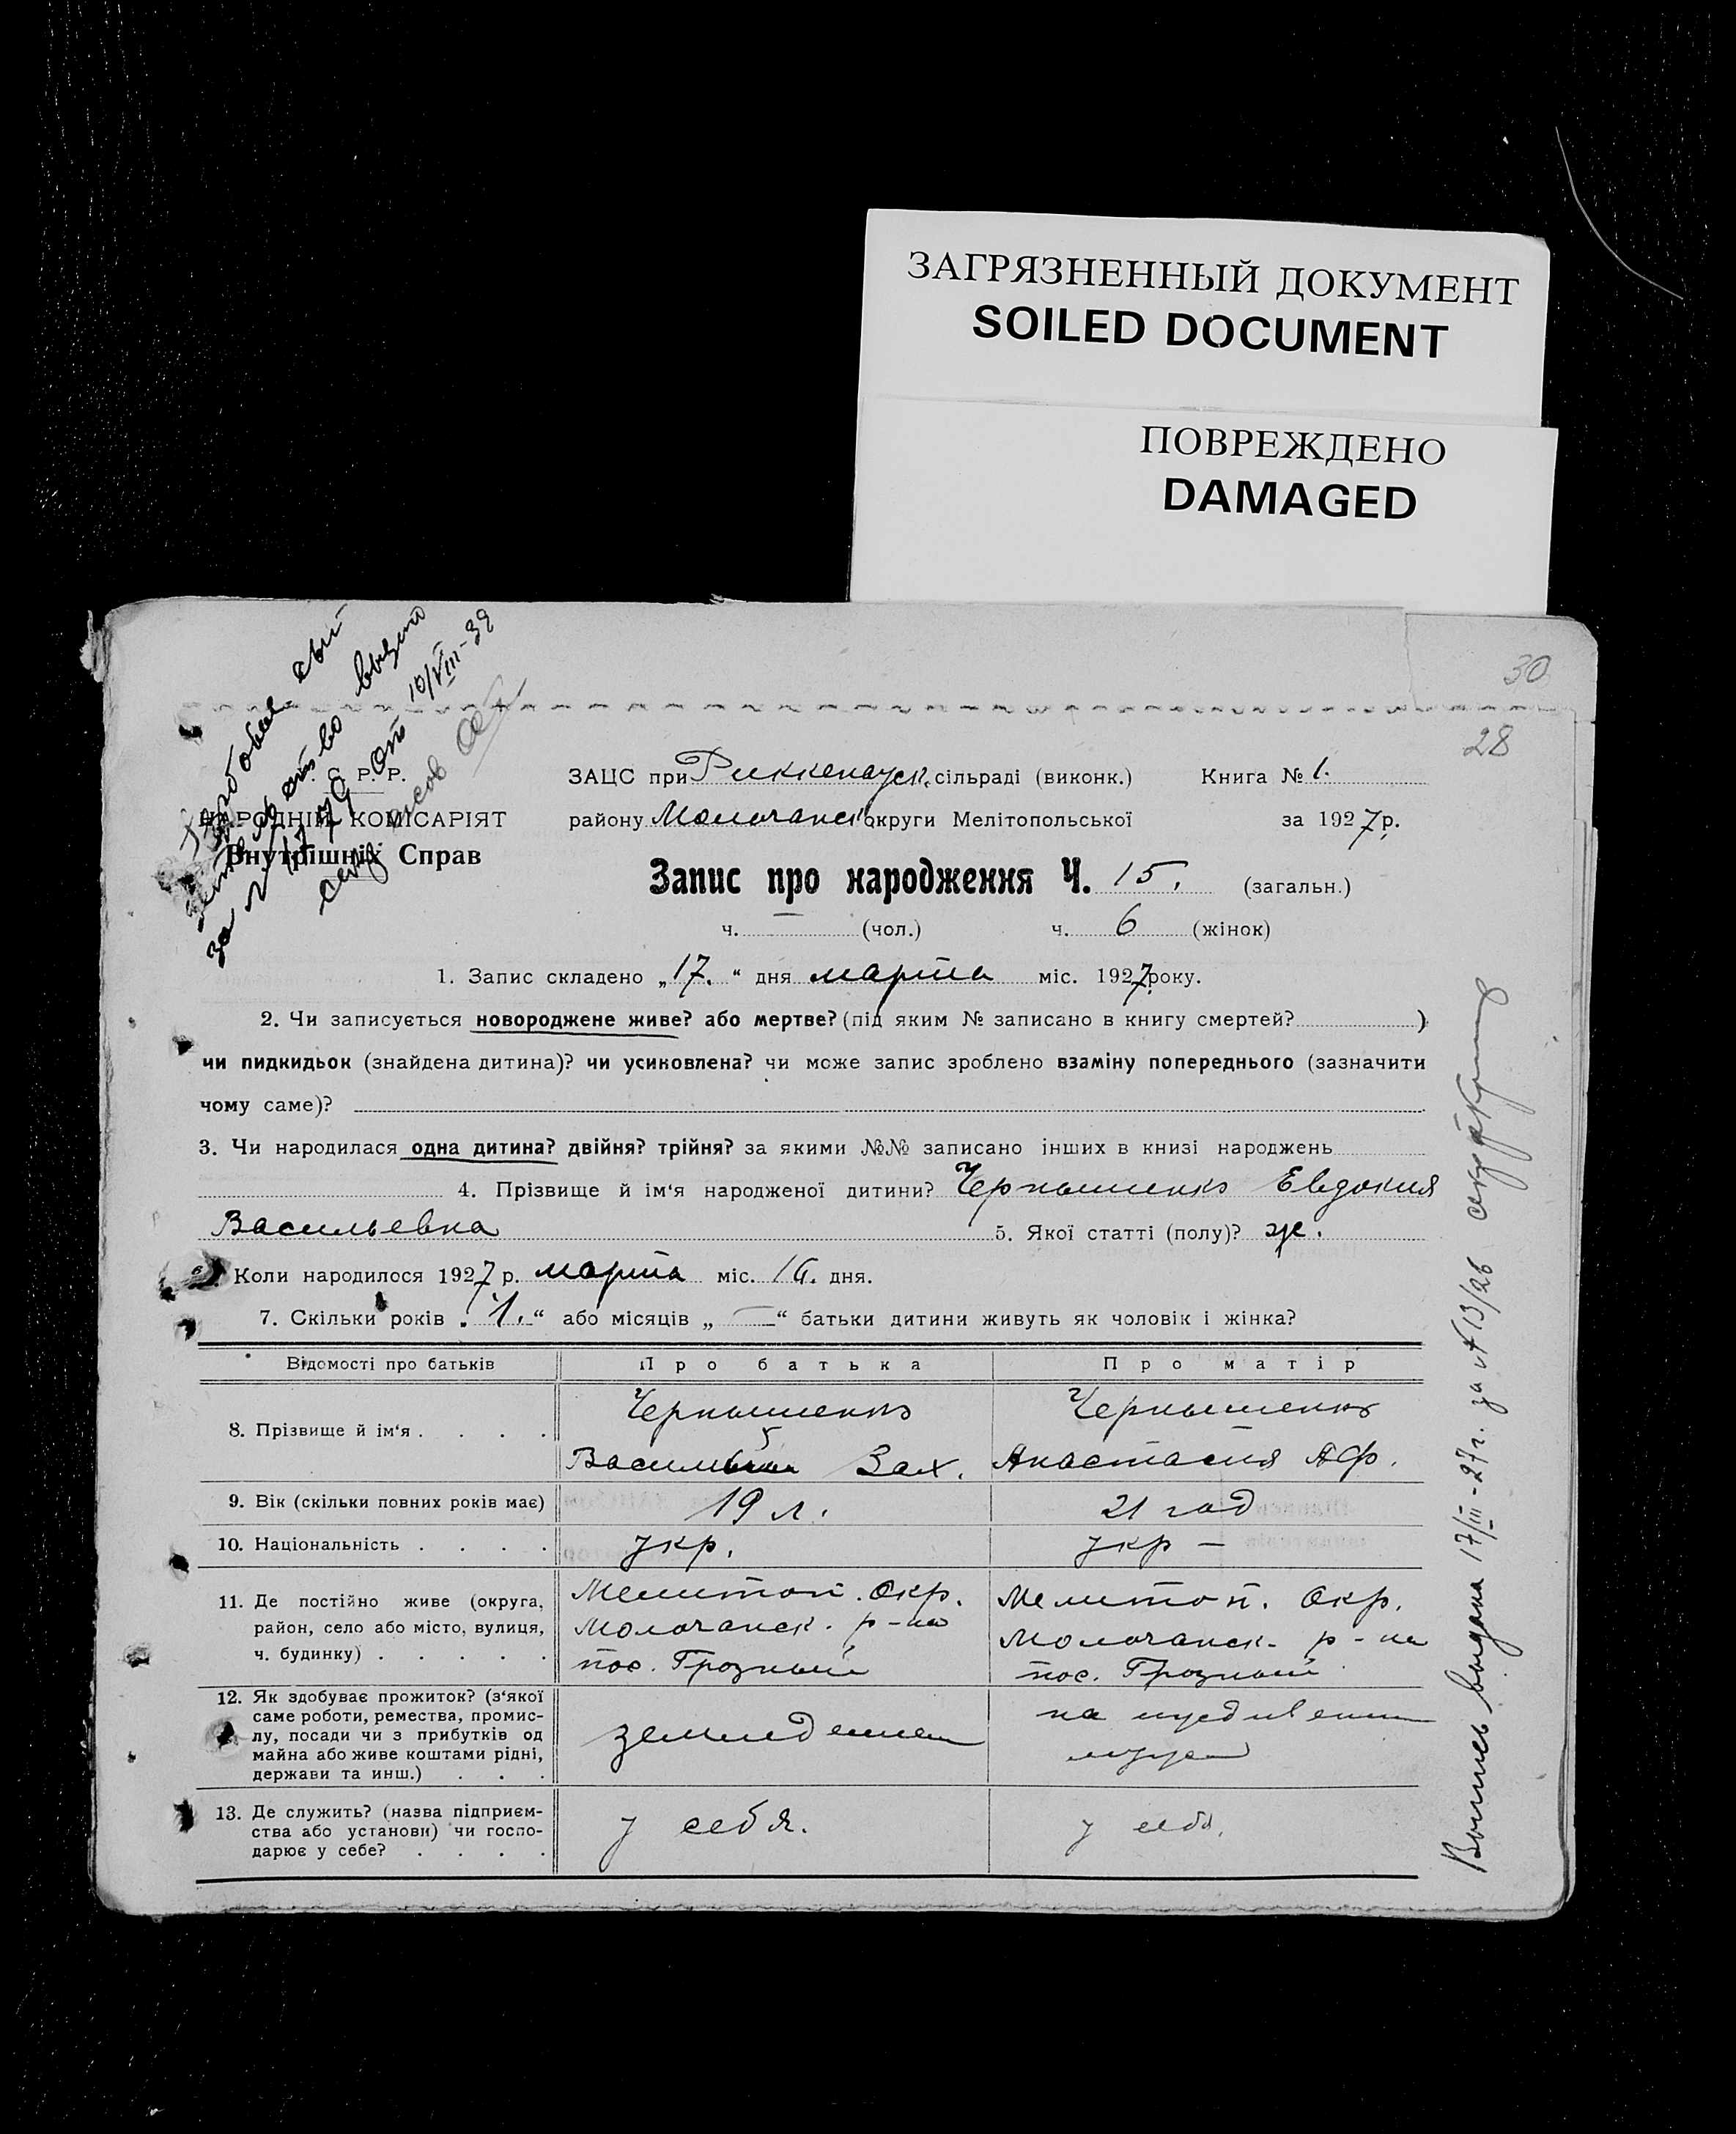 ЗАГРЯЗНЕННЫЙ ДОКУМЕНТ
SOILED DOCUMENT
ПОВРЕЖДЕНО
DAMAGED
30
28
за № 79 от 10/VIII-39
С. Р. Р.
НАРОДНІЙ КОМІСАРІЯТ
Внутрішніх Справ
ЗАЦС при Риккенауск. сільраді (виконк.) Книга № 1.
району Молочанск округи Мелітопольської за 1927 р.
Запис про народження Ч. 15. (загальн.)
ч. — (чол.) ч. 6 (жінок)
1. Запис складено „17.“ дня марта міс. 1927 року.
2. Чи записується новороджене живе? або мертве? (під яким № записано в книгу смертей? )
чи пидкидьок (знайдена дитина)? чи усиновлена? чи може запис зроблено взаміну попереднього (зазначити
чому саме)?
3. Чи народилася одна дитина? двійня? трійня? за якими №№ записано інших в книзі народжень
4. Прізвище й ім'я народженої дитини? Чернышенко Евдокия
Васильевна 5. Якої статті (полу)? ж.
6. Коли народилося 1927 р. марта міс. 16. дня.
7. Скільки років „1.“ або місяців „—“ батьки дитини живуть як чоловік і жінка?
Відомості про батьків Про батька Про матір
8. Прізвище й ім'я . . . . Чернышенко Чернышенко
Василий Зах. Анастасия Аф.
9. Вік (скільки повних років має) 19 л. 21 год
10. Національність . . . . укр. укр —
11. Де постійно живе (округа, Мелитоп. Окр. Мелитоп. Окр.
район, село або місто, вулиця, Молочанск. р-на Молочанск. р-на
ч. будинку) . . . . . пос. Грозный пос. Грозный
12. Як здобуває прожиток? (з'якої
саме роботи, ремества, промис-
лу, посади чи з прибутків од
майна або живе коштами рідні,
держави та инш.) . . . земледелием на иждивении
мужа
13. Де служить? (назва підприєм-
ства або установи) чи госпо-
дарює у себе? . . . . у себя. у себя.
Выпись выдана 17/III-27 г. за № 13/26